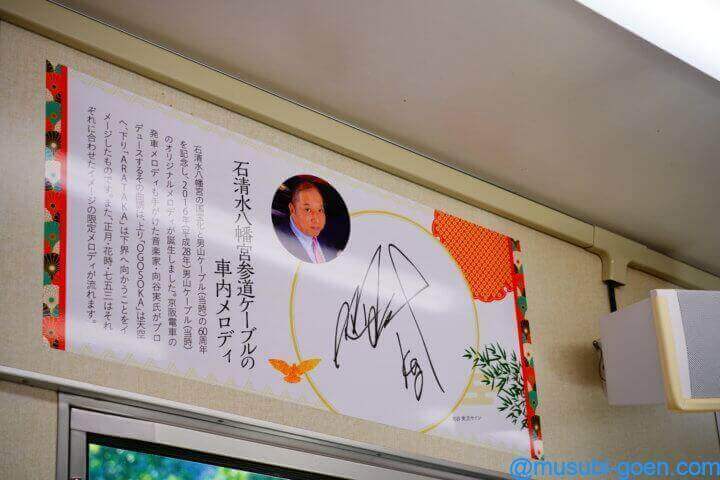 石清水八幡宮参道ケーブルの
車内メロディ
石清水八幡宮の国宝化と男山ケーブル(当時)の60周年
を記念し、2016年(平成28年)男山ケーブル(当時)
のオリジナルメロディが誕生しました。京阪電車の
発車メロディも手がけた音楽家・向谷実氏がプロ
デュースするその曲調は、上り「OGOSOKA」は天空
へ、下り「ARATAKA」は下界へ向かうことをイ
メージしたものです。また、正月・花時・七五三はそれ
ぞれに合わせたイメージの限定メロディが流れます。
@musubi-goen.com